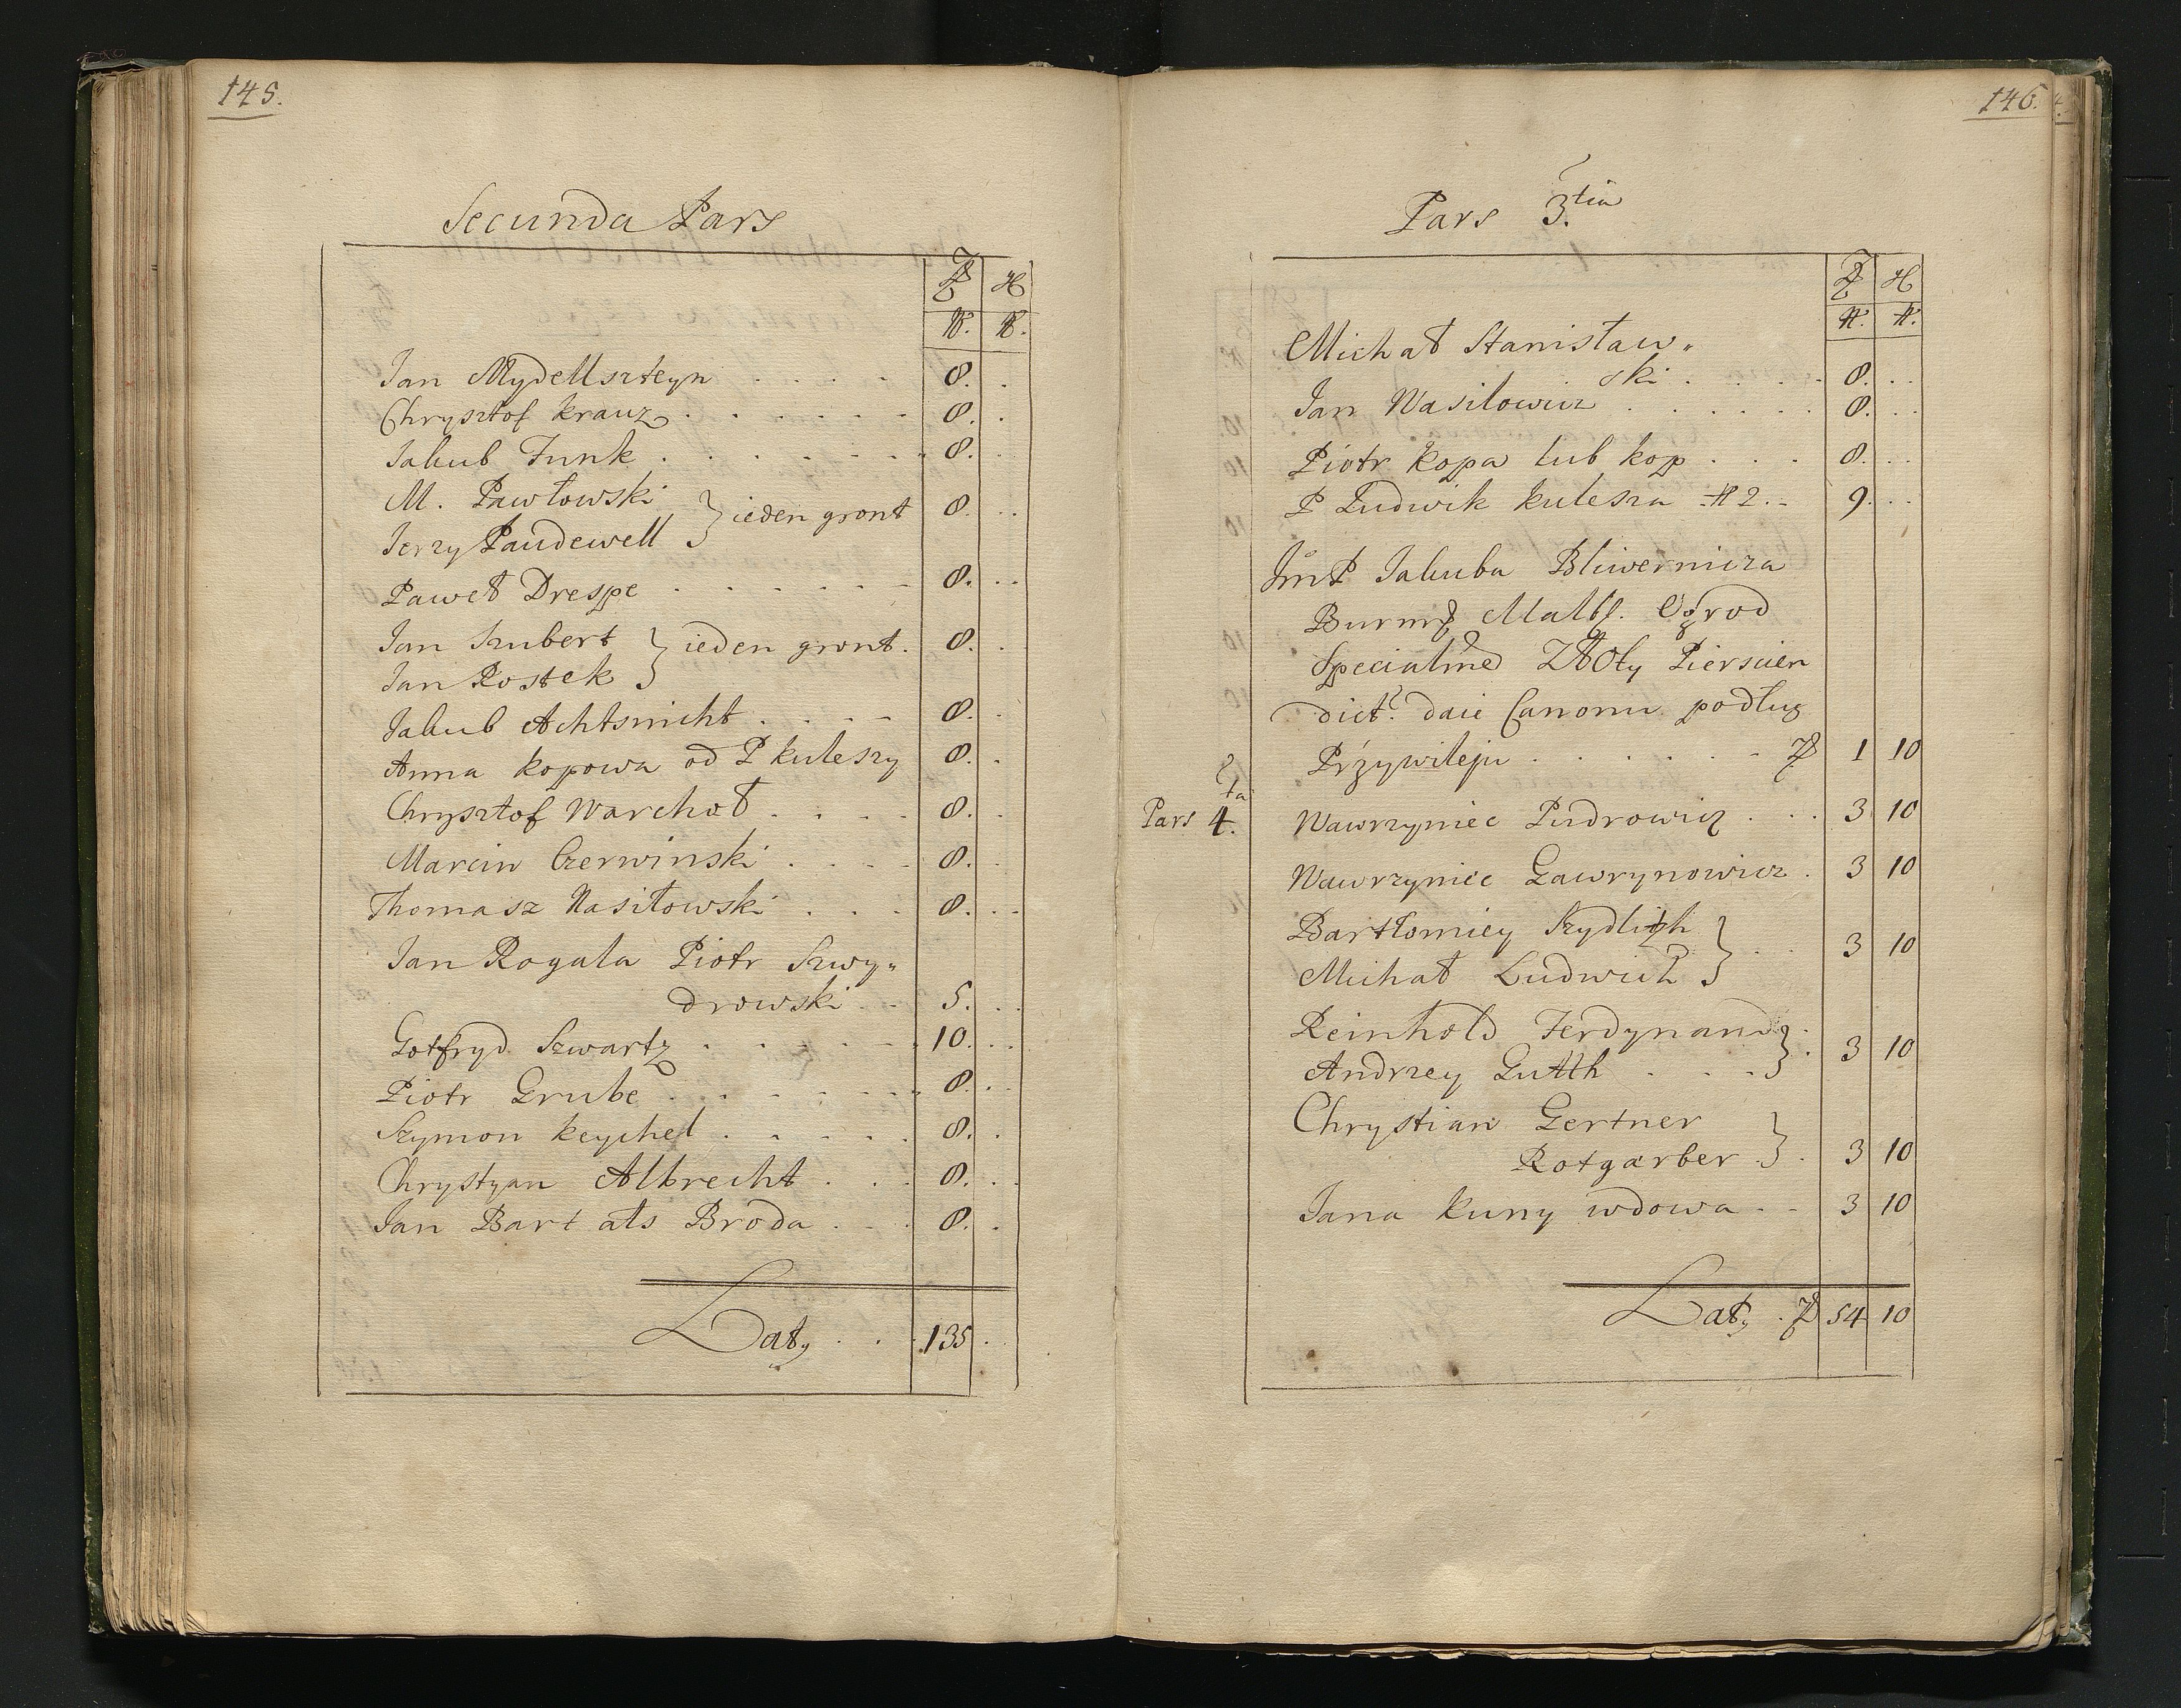 145.
Secunda Pars
Jan Mydellszteyn . . . . 8. .
Chrysztof Krauz . . . . . . 8. .
Jakub Funk . . . . . . . 8. .
M. Pawłowski
Jerzy Paudewell } ieden gront 8. . .
Paweł Drespe . . . . . . 8. . .
Jan Szubert } ieden gront. 8. .
Jan Rostek
Jakub Achtsnicht . . . . 8. .
Anna Kopowa od P Kuleszy 8. .
Chrysztof Warchoł . . . . 8. .
Marcin Czerwinski . . . . 8. .
Thomasz Wasiłowski . . . 8. . .
Jan Rogala Piotr Szwy„
drowski . . 5. . .
Gotfryd Szwartz . . . . . . 10. . .
Piotr Grube . . . . . . . 8. . .
Szymon Keychel . . . . . 8. .
Chrystyan Albrecht . . . 8. . .
Jan Bart als Broda . . . 8. .
Laty . . . 135 .
146.
Pars 3.tia
Michał Stanisław„
ski . . . . 8. . .
Jan Wasilowicz . . . . . . 8. . .
Piotr Kopa lub Kop . . . 8. . .
P Ludwik Kulesza # 2. . 9. . .
JmP Jakuba Bliwernicza
Burmz Malb. Ogrod
Specialme Złoty Pierscien
dict. daie Canonu podług
Przywileju . . . . . . 1 10
Pars 4.ta Wawrzyniec Pudrowicz . . . 3 10
Wawrzyniec Gawrynowicz . 3 10
Bartłomiey Szydlizh
Michał Ludwich } . . 3 10
Reinhold Ferdynand .
Andrzey Gutth . . . } . 3 10
Chrystian Gertner
Rotgarber . } . 3 10
Jana Kuny wdowa . . 3 10
Laty . 54 10